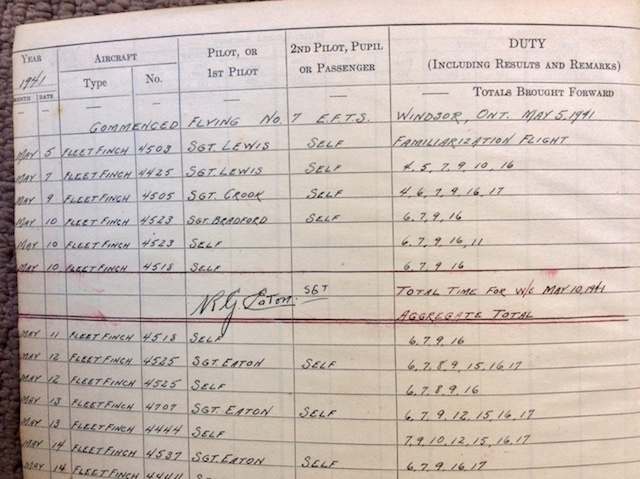 YEAR AIRCRAFT PILOT, OR 2ND PILOT, PUPIL DUTY
1941 Type No. 1ST PILOT OR PASSENGER (INCLUDING RESULTS AND REMARKS)
MONTH DATE — — — — — TOTALS BROUGHT FORWARD
COMMENCED FLYING NO. 7 E.F.T.S. WINDSOR, ONT. MAY 5, 1941
MAY 5 FLEET FINCH 4503 SGT. LEWIS SELF FAMILIARIZATION FLIGHT
MAY 7 FLEET FINCH 4425 SGT. LEWIS SELF 4, 5, 7, 9, 10, 16
MAY 9 FLEET FINCH 4505 SGT. CROOK SELF 4, 6, 7, 9, 16, 17
MAY 10 FLEET FINCH 4523 SGT. BRADFORD SELF 6, 7, 9, 16
MAY 10 FLEET FINCH 4523 SELF 6, 7, 9, 16, 11
MAY 10 FLEET FINCH 4518 SELF 6, 7, 9, 16
R G Eaton. SGT TOTAL TIME FOR W/E MAY 10, 1941
AGGREGATE TOTAL
MAY 11 FLEET FINCH 4518 SELF 6, 7, 9, 16
MAY 12 FLEET FINCH 4525 SGT. EATON SELF 6, 7, 8, 9, 15, 16, 17
MAY 12 FLEET FINCH 4525 SELF 6, 7, 8, 9, 16
MAY 13 FLEET FINCH 4707 SGT. EATON SELF 6, 7, 9, 12, 15, 16, 17
MAY 13 FLEET FINCH 4444 SELF 7, 9, 10, 12, 15, 16, 17
MAY 14 FLEET FINCH 4537 SGT. EATON SELF 6, 7, 9, 16, 17
MAY 14 FLEET FINCH